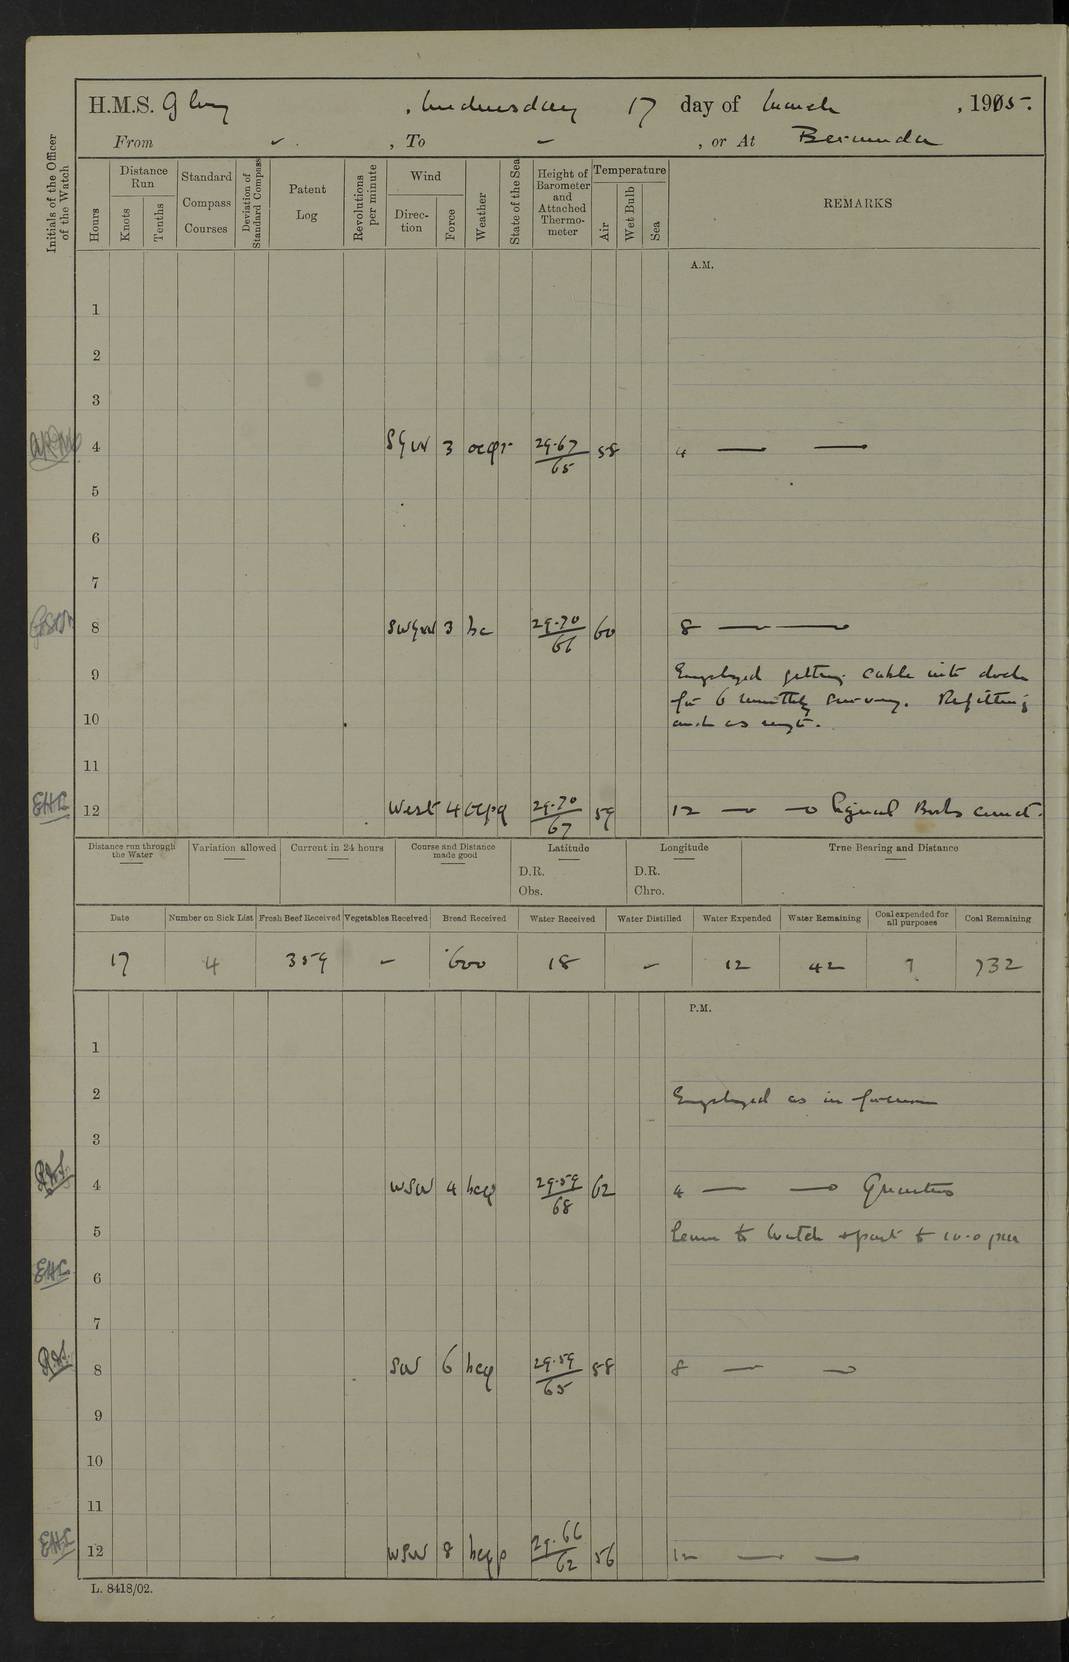 H.M.S. Glory , Wednesday 17 day of March , 1915.
From - , To - , or At Bermuda
Initials of the Officer of the Watch
Hours
Distance Run
Knots
Tenths
Standard Compass Courses
Deviation of Standard Compass
Patent Log
Revolutions per minute
Wind
Direction
Force
Weather
State of the Sea
Height of Barometer and Attached Thermometer
Temperature
Air
Wet Bulb
Sea
REMARKS
A.M.
1
2
3
4 3 ocqr 29.67/65 58 4 — —
5
6
7
8 3 bc 29.70/66 60 8 — —
9 Employed getting cable into dock
for 6 monthly survey. Refitting
10 and as reqt.
11
EHL 12 West 4 29.70/67 59 12 — — Signal Books correct.
Distance run through the Water
Variation allowed
Current in 24 hours
Course and Distance made good
Latitude
D.R.
Obs.
Longitude
D.R.
Chro.
True Bearing and Distance
Date Number on Sick List Fresh Beef Received Vegetables Received Bread Received Water Received Water Distilled Water Expended Water Remaining Coal expended for all purposes Coal Remaining
17 4 359 - 600 18 - 12 42 9 732
P.M.
1
2 Employed as in forenoon
3
4 WSW 4 bcq 29.59/68 62 4 — — Quarters
5 Leave to Watch & part to 10.0 pm
EHL
6
7
8 SW 6 bcq 29.59/65 58 8 — —
9
10
11
EHL 12 WSW 8 bcqp 29.66/62 56 12 — —
L. 8418/02.